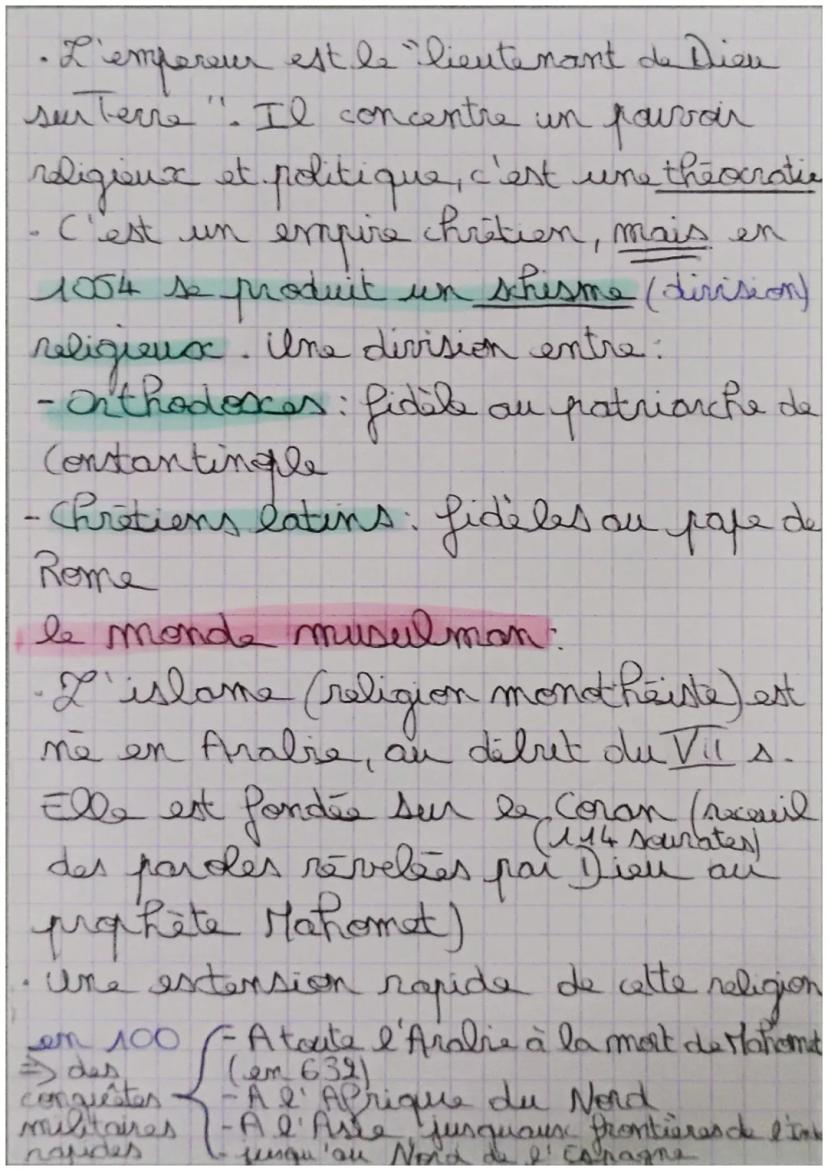 . L'empereur est le "lieutenant de Dieu
sur Terre". Il concentre un pouvoir
religieux et politique, c'est une théocratie
. C'est un empire chrétien, mais en
1054 se produit un schisme (division)
religieux. Une division entre :
- Orthodoxes : fidèle au patriarche de
Constantinople
- Chrétiens latins : fidèles au pape de
Rome
le monde musulman :
. L'islame (religion monothéiste) est
né en Arabie, au début du VII s.
Elle est fondée sur le Coran (receuil
(114 sourates)
des paroles révelées par Dieu au
prophète Mahomet)
. Une extension rapide de cette religion
en 100 - A toute l'Arabie à la mort de Mahomet
=> des (em 632)
conquêtes - A l'Afrique du Nord
militaires - A l'Asie jusquaux frontières de
rapides - jusqu'au Nord de l'Espagne